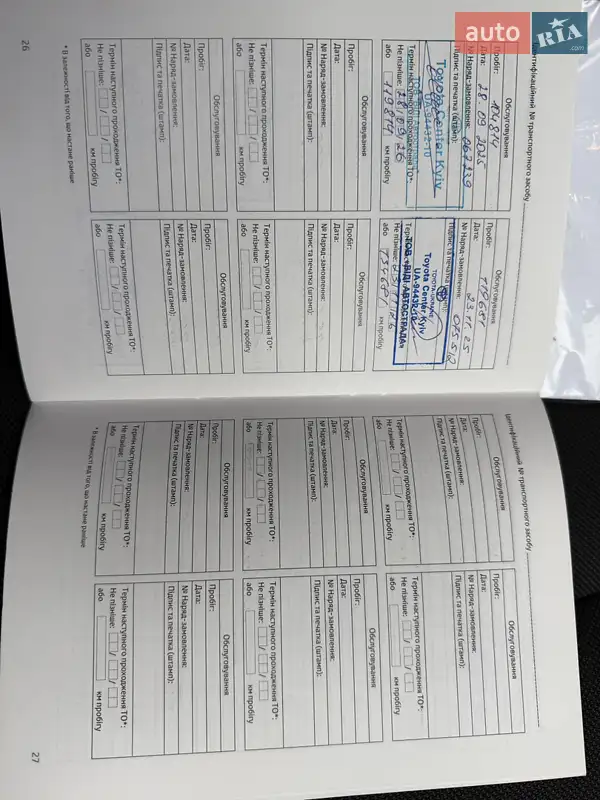 auto RIA .com
Ідентифікаційний № транспортного засобу
Обслуговування
Пробіг: 104814
Дата: 28 09 2025
№ Наряд-замовлення: 067239
Підпис та печатка (штамп):
Toyota Center Kyiv
UA-94432-10
Термін наступного проходження ТО*:
Не пізніше: 28/09/26
або 119814 км пробігу
Пробіг: 119681
Дата: 23.11.25
№ Наряд-замовлення: 075512
Підпис та печатка
Toyota Center, Kyiv
ТОВ «ВІДІ АВТОСТРАДА»
Не пізніше: 23/11/26
або 134681 км пробігу
Обслуговування
Пробіг:
Дата:
№ Наряд-замовлення:
Підпис та печатка (штамп):
Термін наступного проходження ТО*:
Не пізніше: / /
або км пробігу
Обслуговування
Пробіг:
Дата:
№ Наряд-замовлення:
Підпис та печатка (штамп):
Термін наступного проходження ТО*:
Не пізніше: / /
або км пробігу
Обслуговування
Пробіг:
Дата:
№ Наряд-замовлення:
Підпис та печатка (штамп):
Термін наступного проходження ТО*:
Не пізніше: / /
або км пробігу
Обслуговування
Пробіг:
Дата:
№ Наряд-замовлення:
Підпис та печатка (штамп):
Термін наступного проходження ТО*:
Не пізніше: / /
або км пробігу
* В залежності від того, що настане раніше
26
Ідентифікаційний № транспортного засобу
Обслуговування
Пробіг:
Дата:
№ Наряд-замовлення:
Підпис та печатка (штамп):
Термін наступного проходження ТО*:
Не пізніше: / /
або км пробігу
Обслуговування
Пробіг:
Дата:
№ Наряд-замовлення:
Підпис та печатка (штамп):
Термін наступного проходження ТО*:
Не пізніше: / /
або км пробігу
Обслуговування
Пробіг:
Дата:
№ Наряд-замовлення:
Підпис та печатка (штамп):
Термін наступного проходження ТО*:
Не пізніше: / /
або км пробігу
Обслуговування
Пробіг:
Дата:
№ Наряд-замовлення:
Підпис та печатка (штамп):
Термін наступного проходження ТО*:
Не пізніше: / /
або км пробігу
Обслуговування
Пробіг:
Дата:
№ Наряд-замовлення:
Підпис та печатка (штамп):
Термін наступного проходження ТО*:
Не пізніше: / /
або км пробігу
Обслуговування
Пробіг:
Дата:
№ Наряд-замовлення:
Підпис та печатка (штамп):
Термін наступного проходження ТО*:
Не пізніше: / /
або км пробігу
* В залежності від того, що настане раніше
27